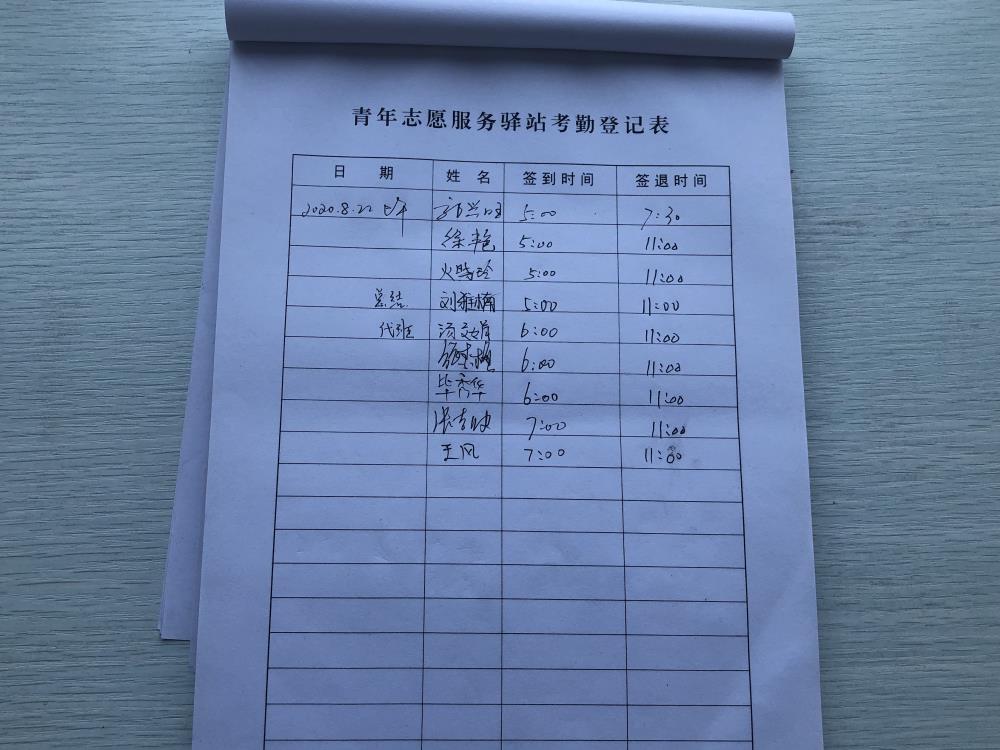 青年志愿服务驿站考勤登记表
日 期 姓 名 签到时间 签退时间
2020.8.22 上午 5:00 7:30
徐艳 5:00 11:00
火晓玲 5:00 11:00
总结 刘雅楠 5:00 11:00
代班 6:00 11:00
6:00 11:00
毕秀华 6:00 11:00
7:00 11:00
王风 7:00 11:00